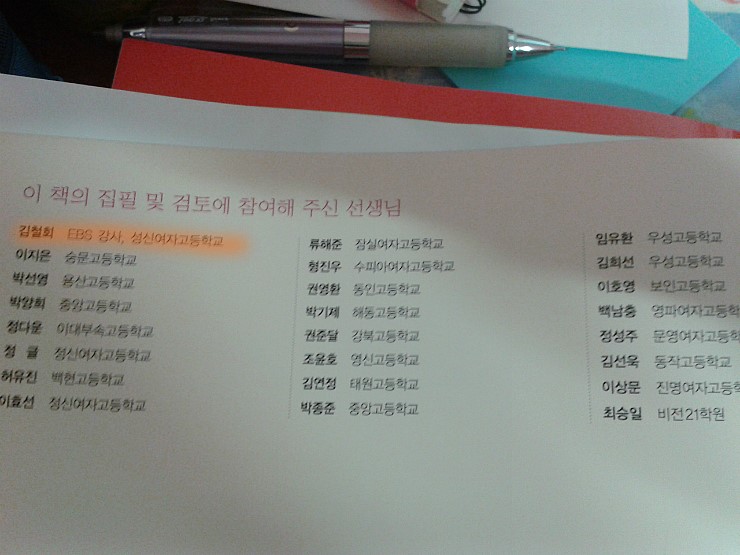 이 책의 집필 및 검토에 참여해 주신 선생님
김철회 EBS 강사, 성신여자고등학교
이지은 숭문고등학교
박선영 용산고등학교
박앙희 중앙고등학교
정다운 이대부속고등학교
정 클 정신여자고등학교
허유진 백현고등학교
이효선 정신여자고등학교
류해준 잠실여자고등학교
형진우 수피아여자고등학교
권영환 동인고등학교
박기제 해동고등학교
권준달 강북고등학교
조윤호 영신고등학교
김연정 태원고등학교
박종준 중앙고등학교
임유환 우성고등학교
김희선 우성고등학교
이호영 보인고등학교
백남충 영파여자고등학
정성주 문영여자고등학
김선욱 동작고등학교
이상문 진명여자고등학
최승일 비전21학원